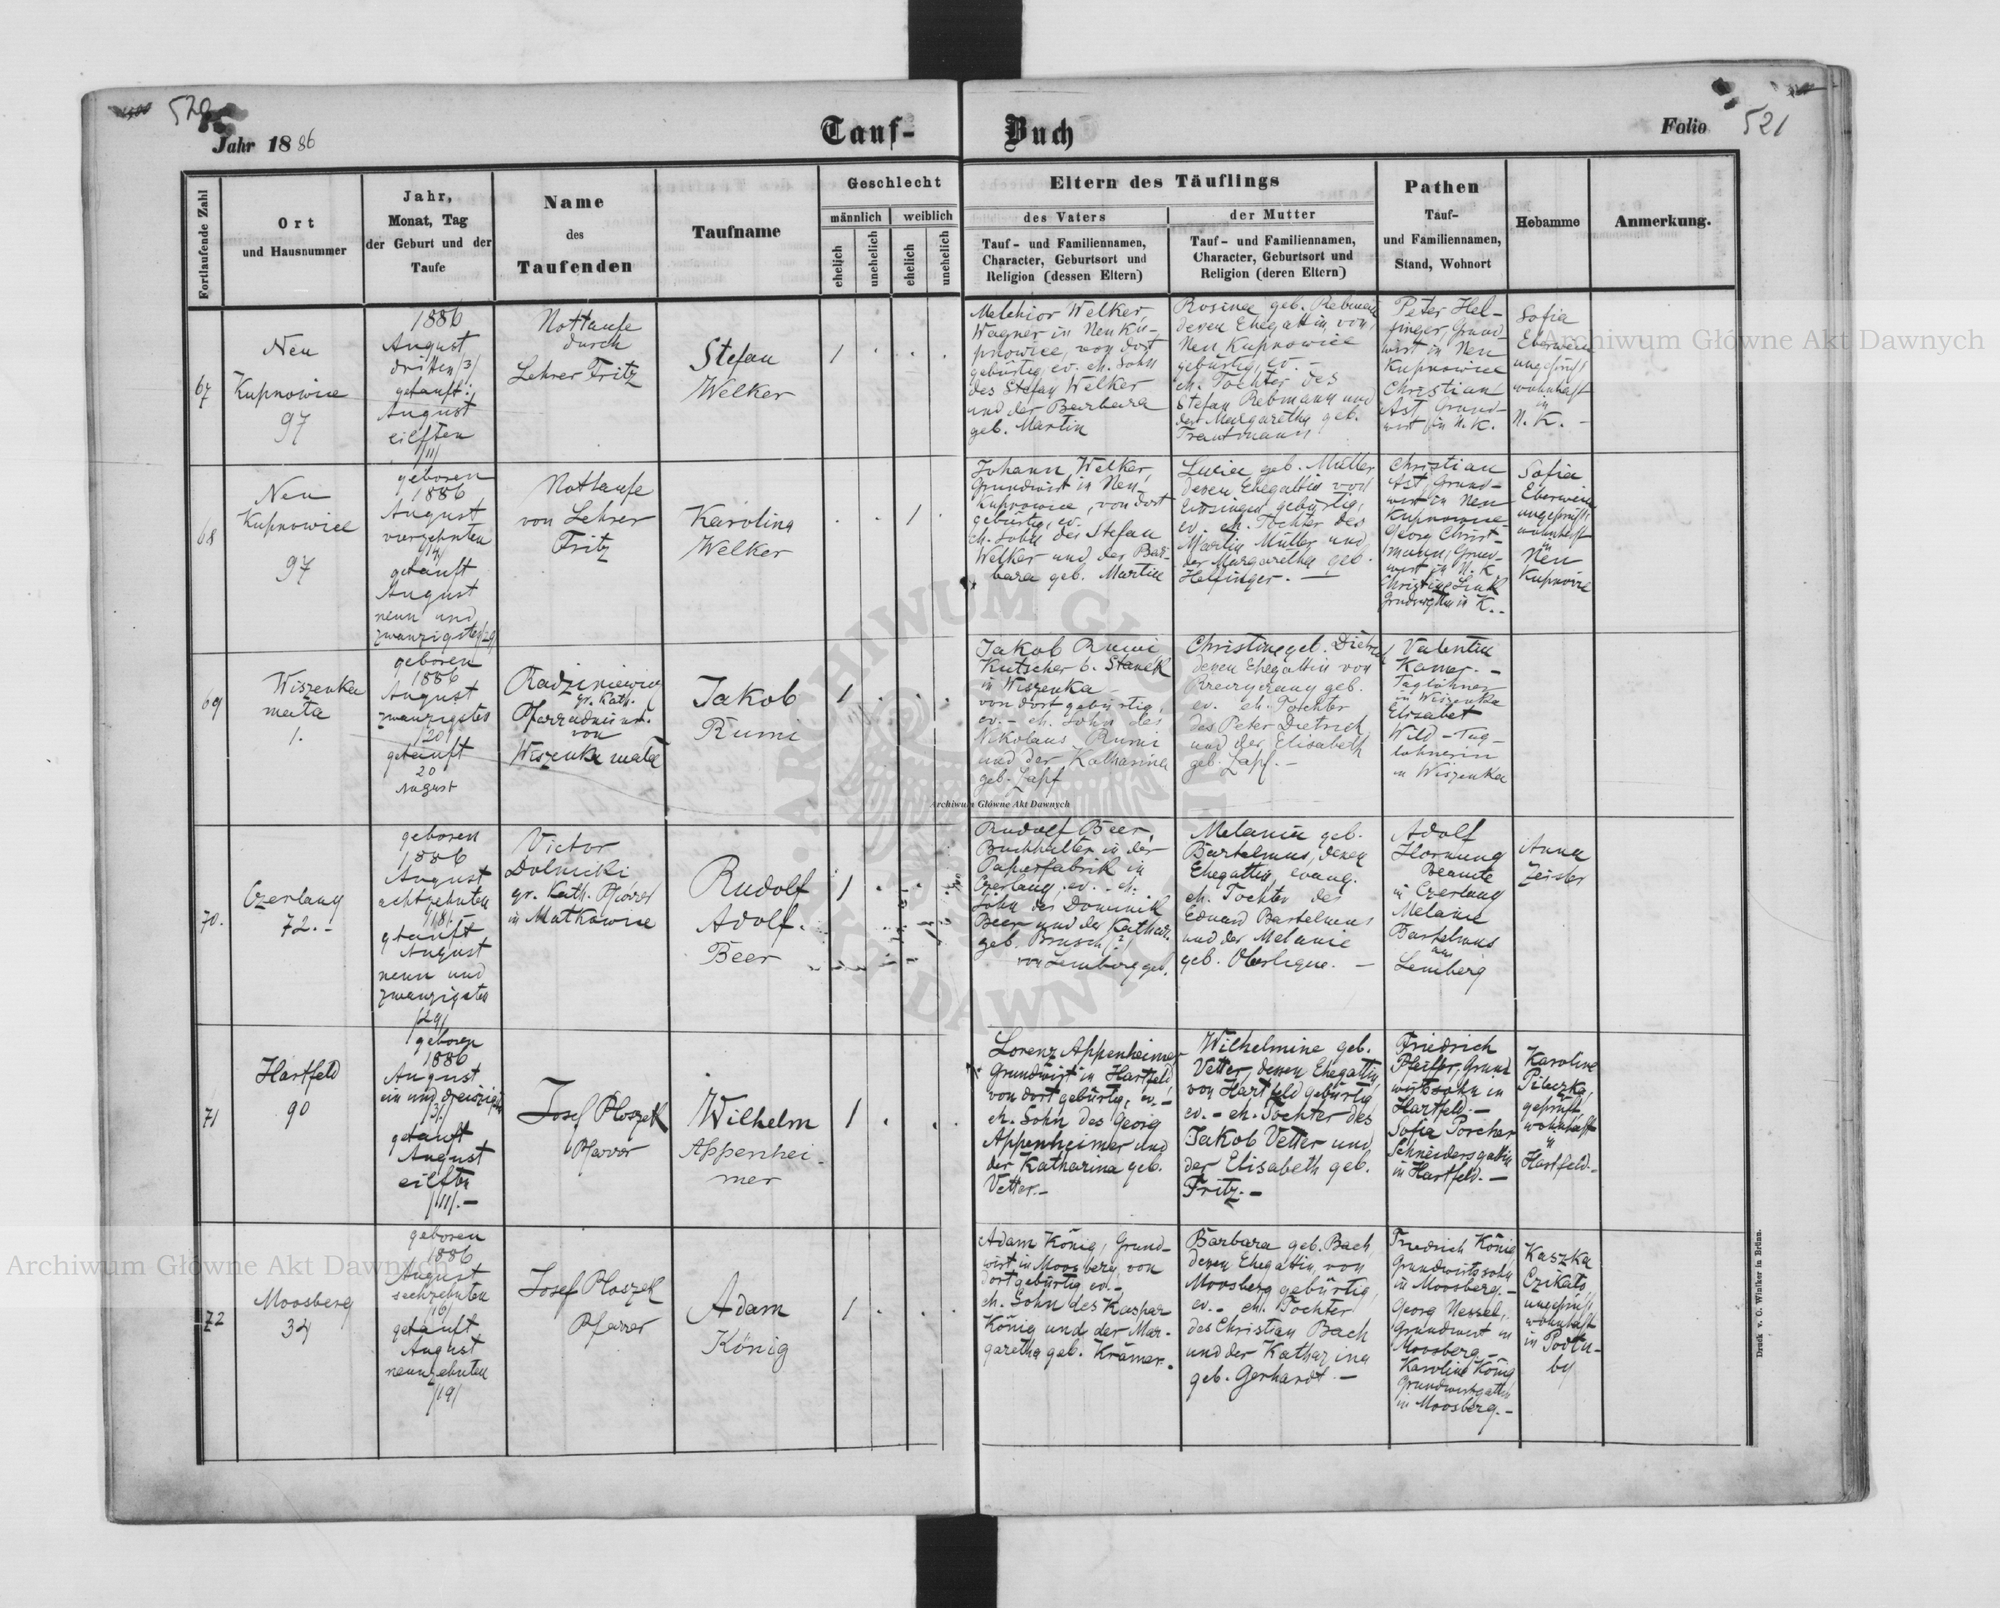 520
Jahr 1886
Tauf-
Buch
Folio 521
Fortlaufende Zahl
Ort
und Hausnummer
Jahr,
Monat, Tag
der Geburt und der
Taufe
Name
des
Taufenden
Taufname
Geschlecht
männlich
weiblich
ehelich
unehelich
ehelich
unehelich
Eltern des Täuflings
des Vaters
Tauf- und Familiennamen,
Character, Geburtsort und
Religion (dessen Eltern)
der Mutter
Tauf- und Familiennamen,
Character, Geburtsort und
Religion (deren Eltern)
Pathen
Tauf-
und Familiennamen,
Stand, Wohnort
Hebamme
Anmerkung.
67
Neu
Kupnowice
97
1886
August
dritten /3/
getauft:
August
eilften
/11/
Nottaufe
durch
Lehrer Fritz
Stefan
Welker
1
Melchior Welker,
Wagner in Neu Ku-
pnowice, von dort
gebürtig, ev. eh. Sohn
des Stefan Welker
und der Barbara
geb. Martin
Rosina geb. Rebmann
deren Ehegattin, von
Neu Kupnowice
gebürtig, ev. -
eh. Tochter des
Stefan Rebmann und
der Margaretha geb.
Trautmann
Peter Hel-
finger, Grund-
wirt in Neu
Kupnowice
Christian
Ast, Grund-
wirt in N. K.
Sofia
Eberwein
ungeprüft
wohnhaft
in
N. K. -
68
Neu
Kupnowice
97
geboren
1886
August
vierzehnten
/14/
getauft
August
neun und
zwanzigsten /29/
Nottaufe
von Lehrer
Fritz
Karolina
Welker
1
Johann Welker
Grundwirt in Neu
Kupnowice, von dort
gebürtig, ev.
eh. Sohn des Stefan
Welker und der Bar-
bara geb. Martin
Lucia geb. Müller
deren Ehegattin von
gebürtig,
ev. eh. Tochter des
Martin Müller und
der Margaretha geb.
Helfinger. -
Christian
Ast, Grund-
wirt in Neu
Kupnowice
Georg Christ-
mann, Grund-
wirt in N. K.
Christine Link
in K. -
Sofia
Eberwein
ungeprüft,
wohnhaft
in
Neu
Kupnowice
69
Wiszenka
mała
1.
geboren
1886
August
zwanzigstes
/20/
getauft
20
August
Radziniewicz
gr. Kath.
von
Wiszenka mała
Jakob
Rumi
1
Jakob Rumi
Kutscher b. Stanek
in Wiszenka -
von dort gebürtig,
ev. - eh. Sohn des
Nikolaus Rumi
und der Katharina
geb. Zapf
Christine geb. Dietrich
deren Ehegattin von
geb.
ev. eh. Tochter
des Peter Dietrich
und der Elisabeth
geb. Zapf. -
Valentin
Kamer. -
Taglöhner
in Wiszenka
Elizabet
Wild - Tag-
löhnerin
in Wiszenka
70.
Czerlany
72. -
geboren
1886
August
achtzehnten
/18/. -
getauft
August
neun und
zwanzigsten
/29/
Victor
Dolnicki
gr. Kath. Pfarrer
in Malkowice
Rudolf
Adolf.
Beer
1
Rudolf Beer,
Buchhalter in der
Papierfabrik in
Czerlany, ev. - eh.
Sohn des Dominik
Beer und der Kathar.
geb. Brusch /?/
von Lemberg geb.
Melania geb.
Bartelmus, deren
Ehegattin, evang.
eh. Tochter des
Eduard Bartelmus
und der Melanie
geb. -
Adolf
Hornung
Beamte
in Czerlany
Melanie
Bartelmus
aus
Lemberg
Anna
Zeisler
71
Hartfeld
90
geboren
1886
August
ein und dreißigste
/31/
getauft
August
eilften
/11/. -
Josef Ploszek
Pfarrer
Wilhelm
Appenhei-
mer
1
Lorenz Appenheimer
Grundwirt in Hartfeld
von dort gebürtig, ev. -
eh. Sohn des Georg
Appenheimer und
der Katharina geb.
Vetter. -
Wilhelmine geb.
Vetter, dessen Ehegattin,
von Hartfeld gebürtig
ev. - eh. Tochter des
Jakob Vetter und
der Elisabeth geb.
Fritz. -
Friedrich
Pfeiffer, Grund
wirtssohn in
Hartfeld. -
Sofia Porcher
Schneidersgattin
in Hartfeld. -
Karoline
Pileczka,
geprüft
wohnhaft
in
Hartfeld -
72
Moosberg
34
geboren
1886
August
sechzehnten
/16/
getauft
August
neunzehnten
/19/
Josef Ploszek
Pfarrer
Adam
König
1
Adam König, Grund-
wirt in Moosberg von
dort gebürtig, ev. -
eh. Sohn des Kaspar
König und der Mar-
garetha geb. Krämer.
Barbara geb. Bach
deren Ehegattin, von
Moosberg gebürtig,
ev. - eh. Tochter
des Christian Bach
und der Katharina
geb. Gerhardt. -
Friedrich König
Grundwirtssohn
in Moosberg. -
Georg Nessel,
Grundwirt in
Moosberg. -
Karoline König
Grundwirtsgattin
in Moosberg. -
Kaszka
Czikats
ungeprüft
wohnhaft
in Podłu-
by
Druck v. G. Winiker in Brünn.
Archiwum Główne Akt Dawnych
Archiwum Główne Akt Dawnych
Archiwum Główne Akt Dawnych